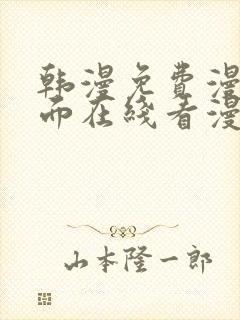 韩漫免费漫
而在线看漫
山本隆一郎